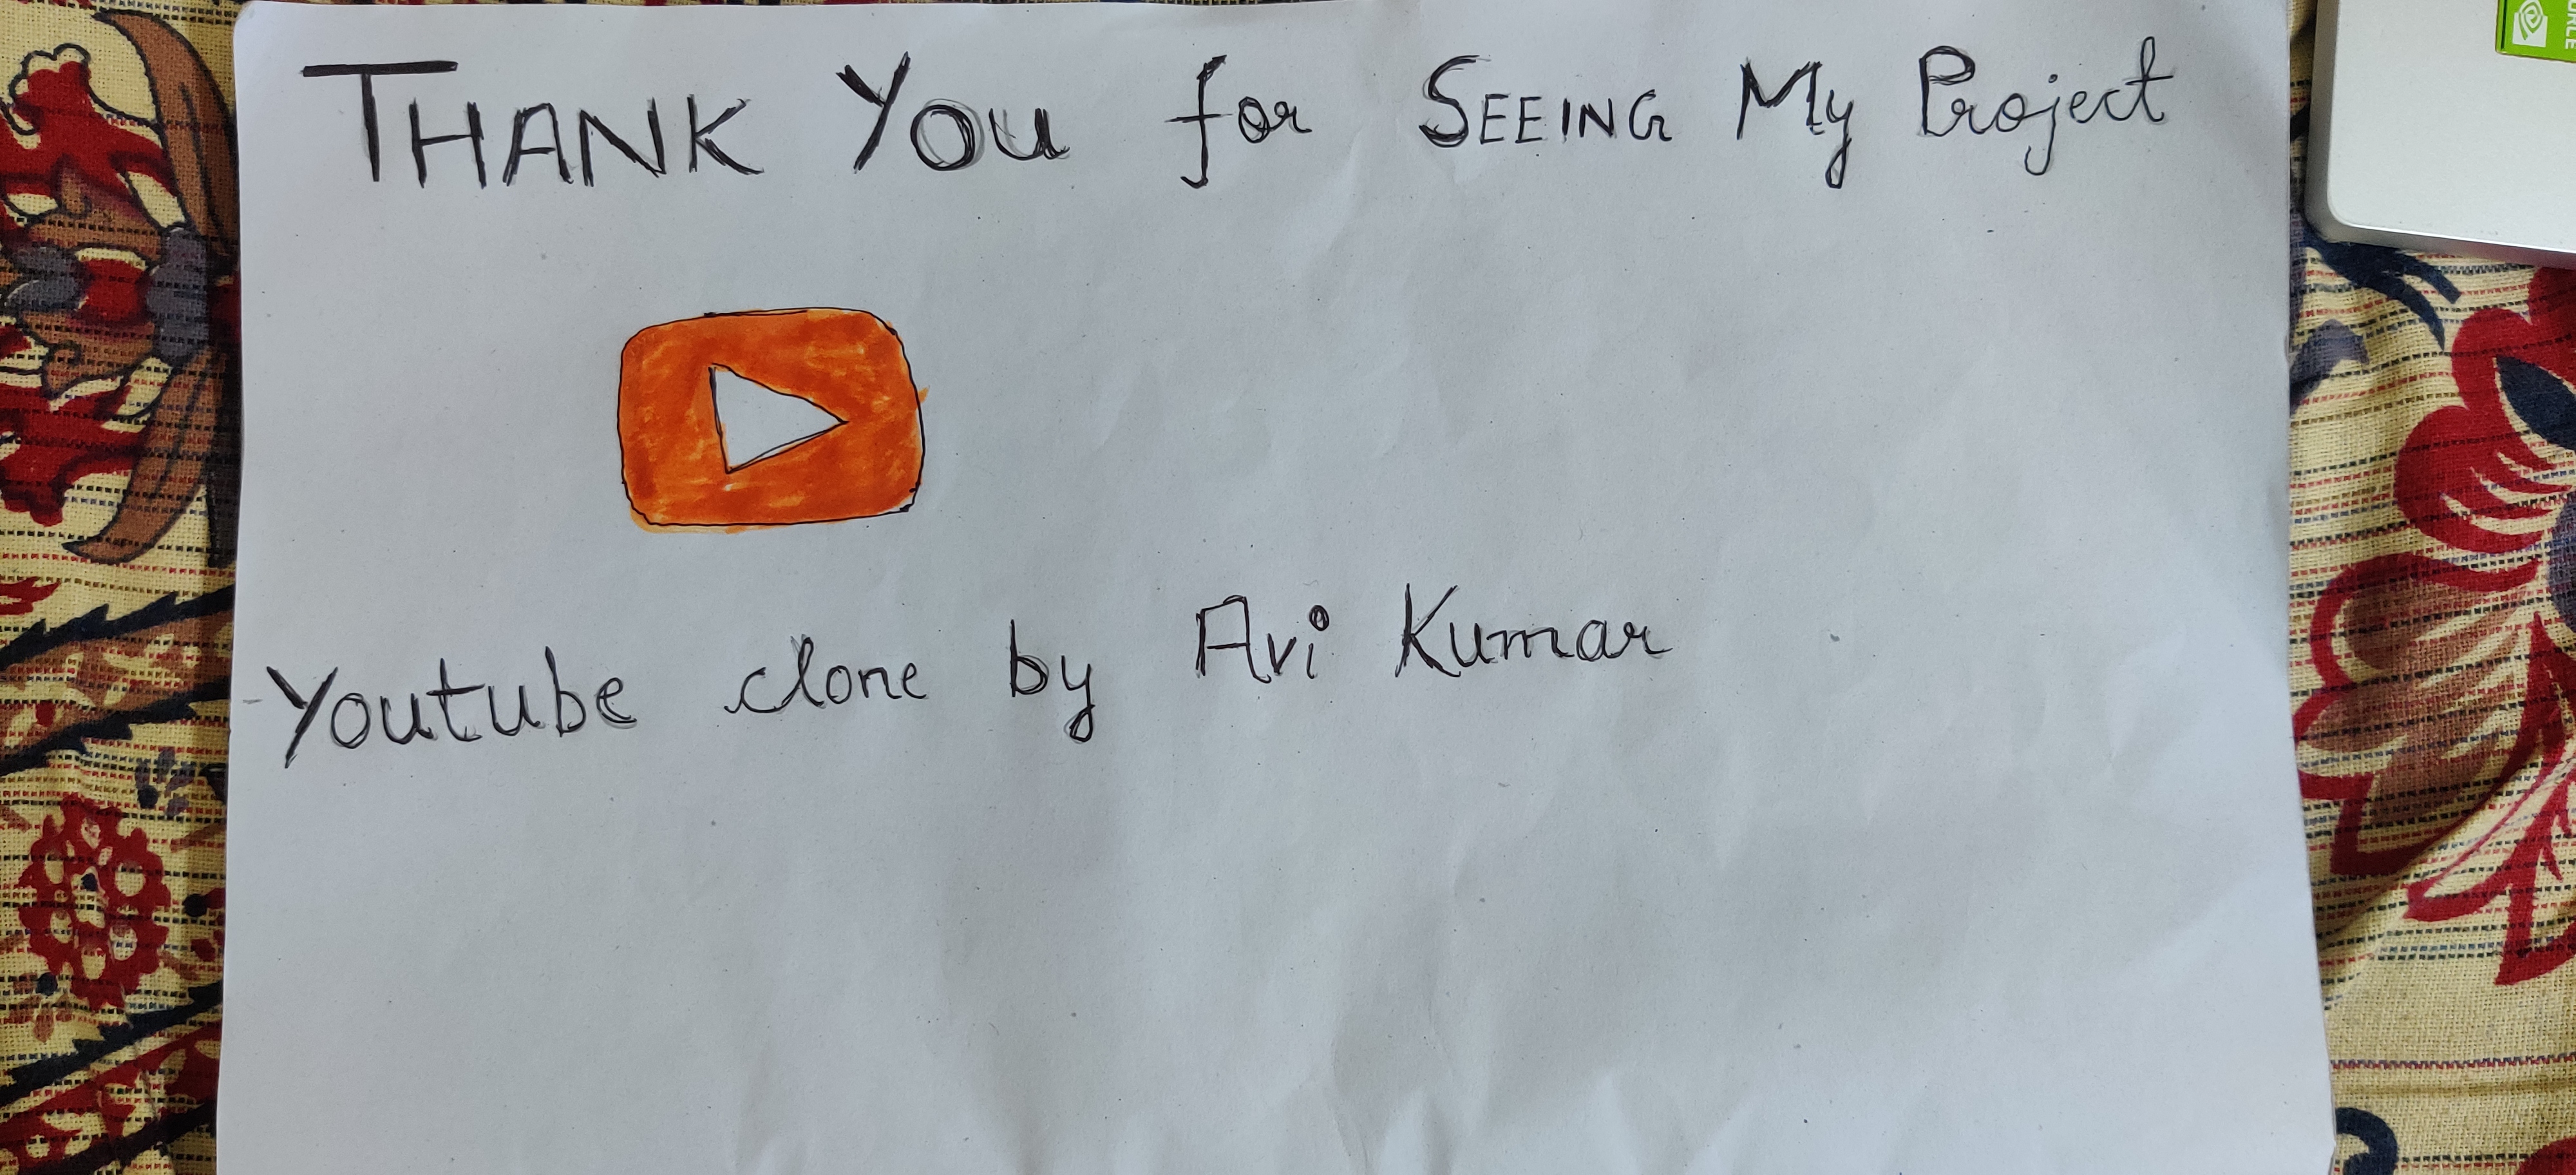 THANK YOU for SEEING My Project
Youtube clone by Avi Kumar